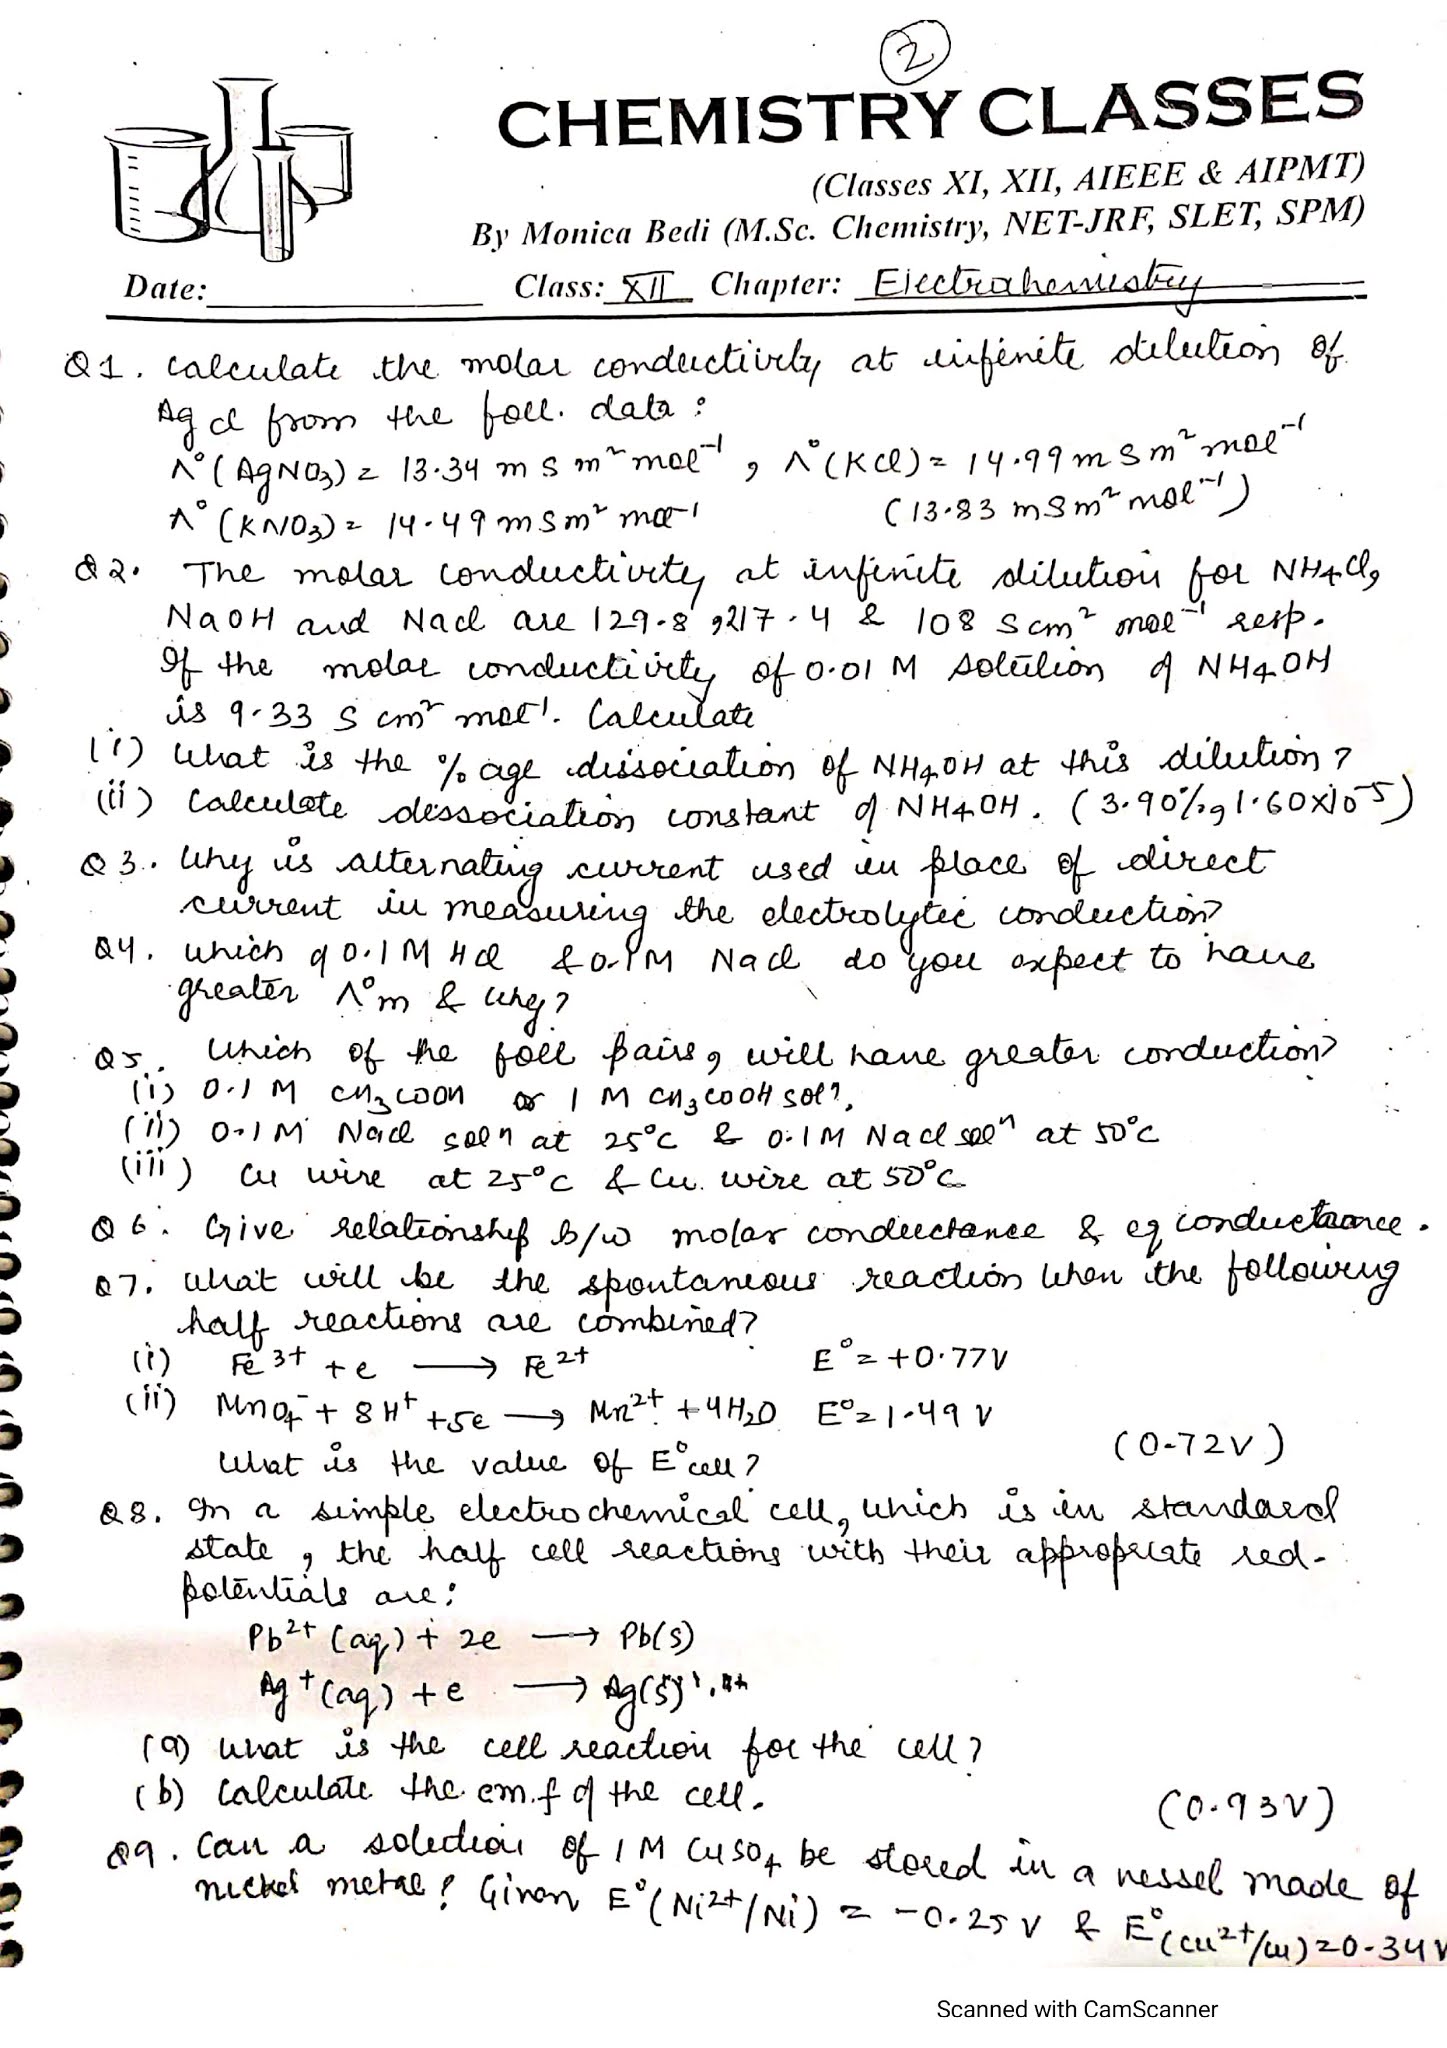 2
CHEMISTRY CLASSES
(Classes XI, XII, AIEEE & AIPMT)
By Monica Bedi (M.Sc. Chemistry, NET-JRF, SLET, SPM)
Date: Class: XII Chapter: Electrochemistry
Q1. Calculate the molar conductivity at infinite dilution of
AgCl from the foll. data:
Λ°(AgNO₃) = 13.34 m S m² mol⁻¹, Λ°(KCl) = 14.99 m S m² mol⁻¹
Λ°(KNO₃) = 14.49 m S m² mol⁻¹ (13.83 mSm² mol⁻¹)
Q2. The molar conductivity at infinite dilution for NH₄Cl,
NaOH and NaCl are 129.8, 217.4 & 108 S cm² mol⁻¹ resp.
If the molar conductivity of 0.01 M solution of NH₄OH
is 9.33 S cm² mol⁻¹. Calculate
(i) What is the % age dissociation of NH₄OH at this dilution?
(ii) Calculate dissociation constant of NH₄OH. (3.90%, 1.60×10⁻⁵)
Q3. Why is alternating current used in place of direct
current in measuring the electrolytic conduction?
Q4. Which of 0.1 M HCl & 0.1M NaCl do you expect to have
greater Λ°m & Why?
Q5. Which of the foll pairs, will have greater conduction?
(i) 0.1 M CH₃COOH or 1 M CH₃COOH solⁿ.
(ii) 0.1M NaCl solⁿ at 25°C & 0.1M NaCl solⁿ at 50°C
(iii) Cu wire at 25°C & Cu. wire at 50°C
Q6. Give relationship b/w molar conductance & eq conductance.
Q7. What will be the spontaneous reaction when the following
half reactions are combined?
(i) Fe³⁺ + e ⟶ Fe²⁺ E° = +0.77V
(ii) MnO₄⁻ + 8H⁺ + 5e ⟶ Mn²⁺ + 4H₂O E° = 1.49 V
What is the value of E°cell? (0.72V)
Q8. In a simple electrochemical cell, which is in standard
state, the half cell reactions with their appropriate red.
potentials are:
Pb²⁺(aq) + 2e ⟶ Pb(s)
Ag⁺(aq) + e ⟶ Ag(s)
(a) What is the cell reaction for the cell?
(b) Calculate the em.f of the cell. (0.93V)
Q9. Can a solution of 1 M CuSO₄ be stored in a vessel made of
nickel metal? Given E°(Ni²⁺/Ni) = -0.25 V & E°(Cu²⁺/Cu) = 0.34 V
Scanned with CamScanner